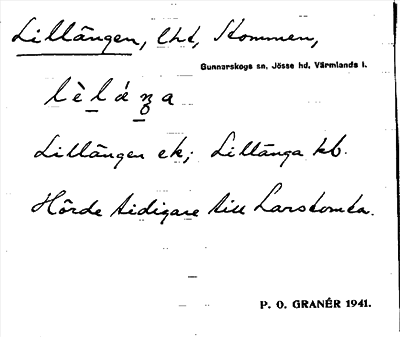 Lillängen, lht, Kommen,
Gunnarskogs sn, Jösse hd, Värmlands l.
lè l á ŋ a
Lillängen ek; Lillänga kb.
Hörde tidigare till Larstomta.
P. O. GRANÉR 1941.